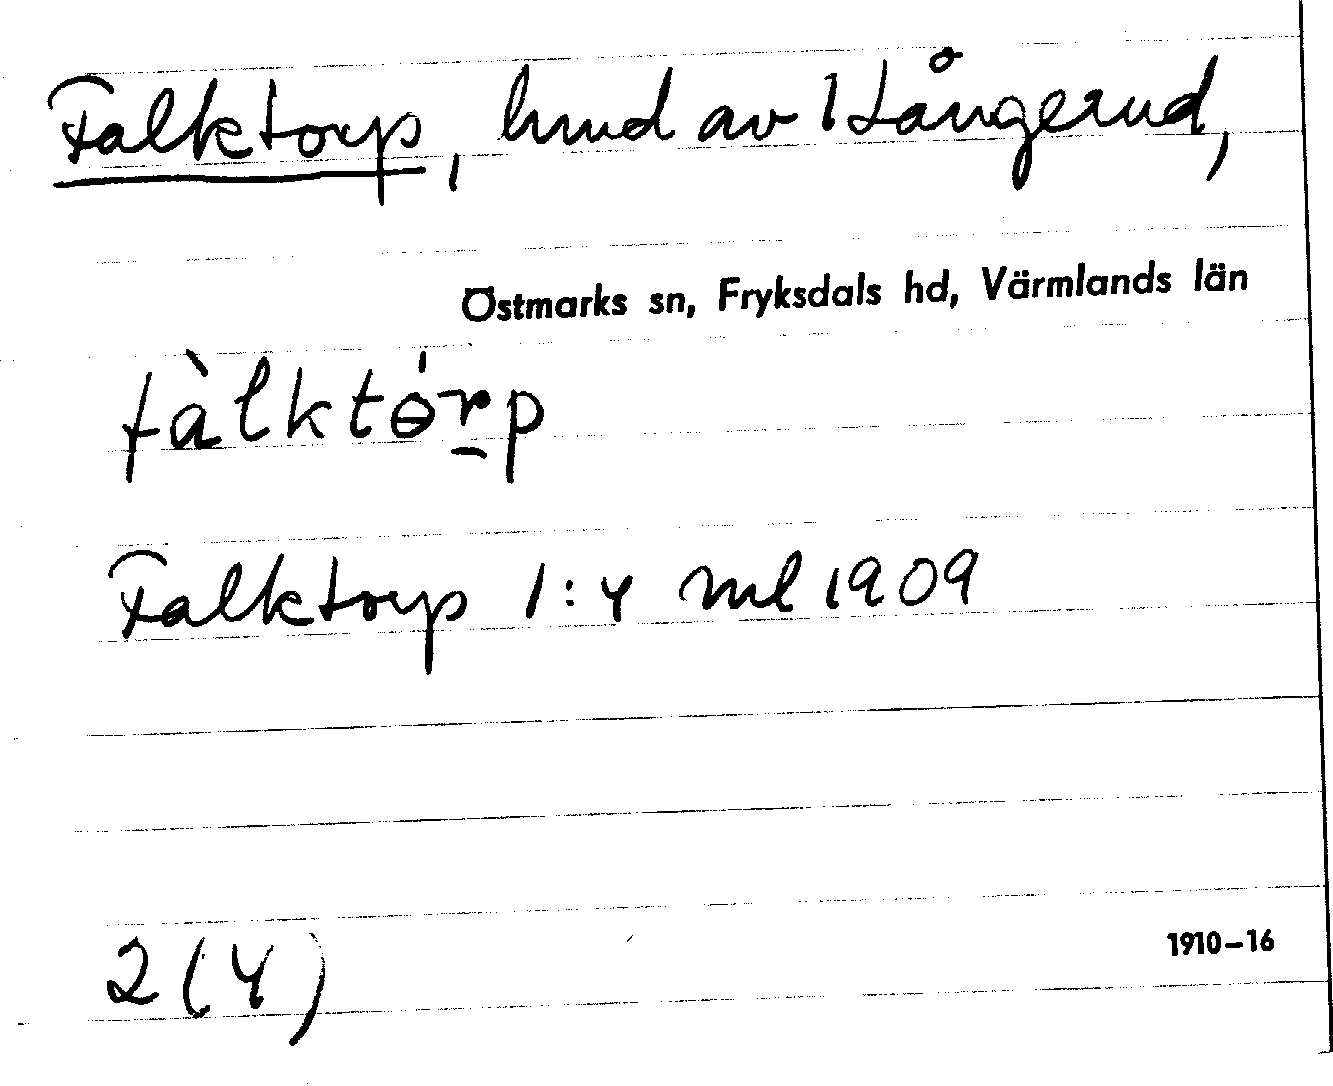 Falktorp, hmd av 1 Långerud,
Östmarks sn, Fryksdals hd, Värmlands län
fàlktɵ́r̠p
Falktorp 1:4 ml 1909
2 (4)
1910–16